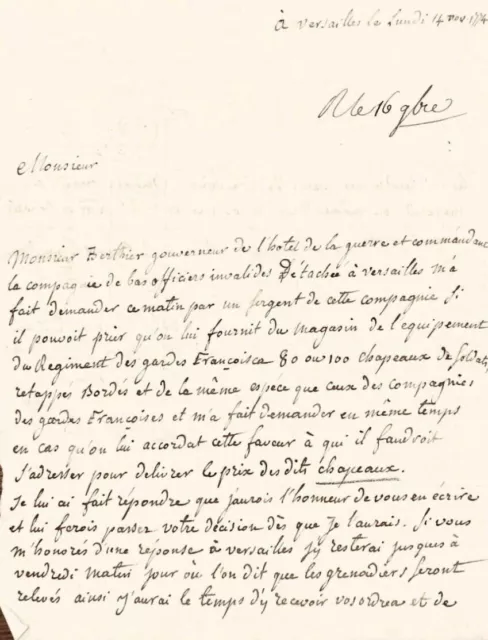 à Versailles le Lundi 14 nov 1774
R le 16 9bre
Monsieur
Monsieur Berthier gouverneur de l'hotel de la guerre et commandant
la compagnie de bas officiers invalides Détachée à versailles m'a
fait demander ce matin par un sergent de cette compagnie Si
il pouvoit prier qu'on lui fournit du magasin de l'équipement
du Regiment des gardes françoises 80 ou 100 chapeaux de Soldats
retappés Bordés et de la même espece que ceux des compagnies
des gardes françoises et m'a fait demander en même temps
en cas qu'on lui accordat cette faveur à qui il faudroit
S'adresser pour delivrer le prix des dits chapeaux.
Je lui ai fait répondre que j'aurois l'honneur de vous en écrire
et lui ferois passer votre décision dès que Je l'aurais. Si vous
m'honorés d'une réponse à versailles j'y resterai jusques à
vendredi matin jour où l'on dit que les grenadiers seront
relevés ainsi j'aurai le temps d'y recevoir vos ordres et de